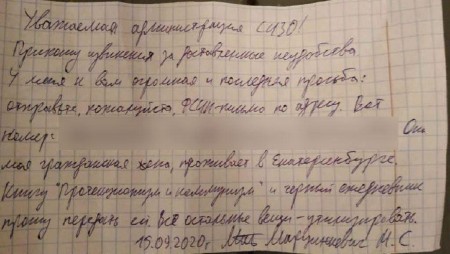 Уважаемая администрация СИЗО!
Приношу извинения за доставленные неудобства
У меня к вам огромная и последняя просьба:
открывьте, пожалуйста, ФСИН-письмо по адресу. Вот
номер: Она
моя гражданская жена, проживает в Екатеринбурге.
Книгу "Протекционизм и коммунизм" и черный ежедневник
прошу передать ей. Всё остальные вещи - утилизировать.
15.09.2020г Марцинкевич М.С.